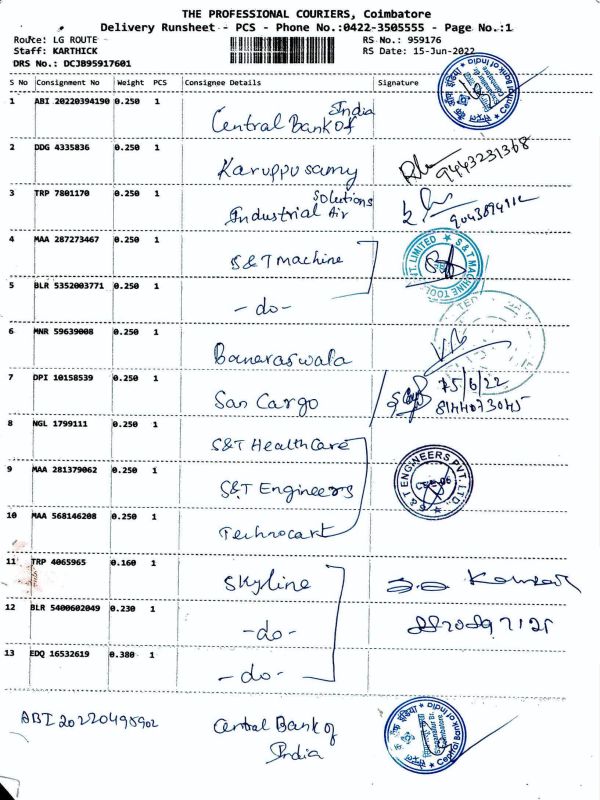 THE PROFESSIONAL COURIERS, Coimbatore
Delivery Runsheet - PCS - Phone No.:0422-3505555 - Page No.:1
Route: LG ROUTE RS No.: 959176
Staff: KARTHICK RS Date: 15-Jun-2022
DRS No.: DCJB95917601
S No Consignment No Weight PCS Consignee Details Signature
1 ABI 20220394190 0.250 1 Central Bank Of India
2 DDG 4335836 0.250 1 Karuppusamy 9443231368
3 TRP 7801170 0.250 1 Industrial Air Solutions
4 MAA 287273467 0.250 1 S&T Machine
S&T MACHINE TOOL
LIMITED
5 BLR 5352003771 0.250 1 -do-
6 MNR 59639008 0.250 1 Banaraswala
7 DPI 10158539 0.250 1 San Cargo 15/6/22
8144073045
8 NGL 1799111 0.250 1 S&T HealthCare
9 MAA 281379062 0.250 1 S&T Engineers
S&T ENGINEERS PVT. LTD.
10 MAA 568146208 0.250 1 Technocart
11 TRP 4065965 0.160 1 Skyline
12 BLR 5400602049 0.230 1 -do-
13 EDQ 16532619 0.380 1 -do-
ABI 20220495902 Central Bank of India
Central Bank of India